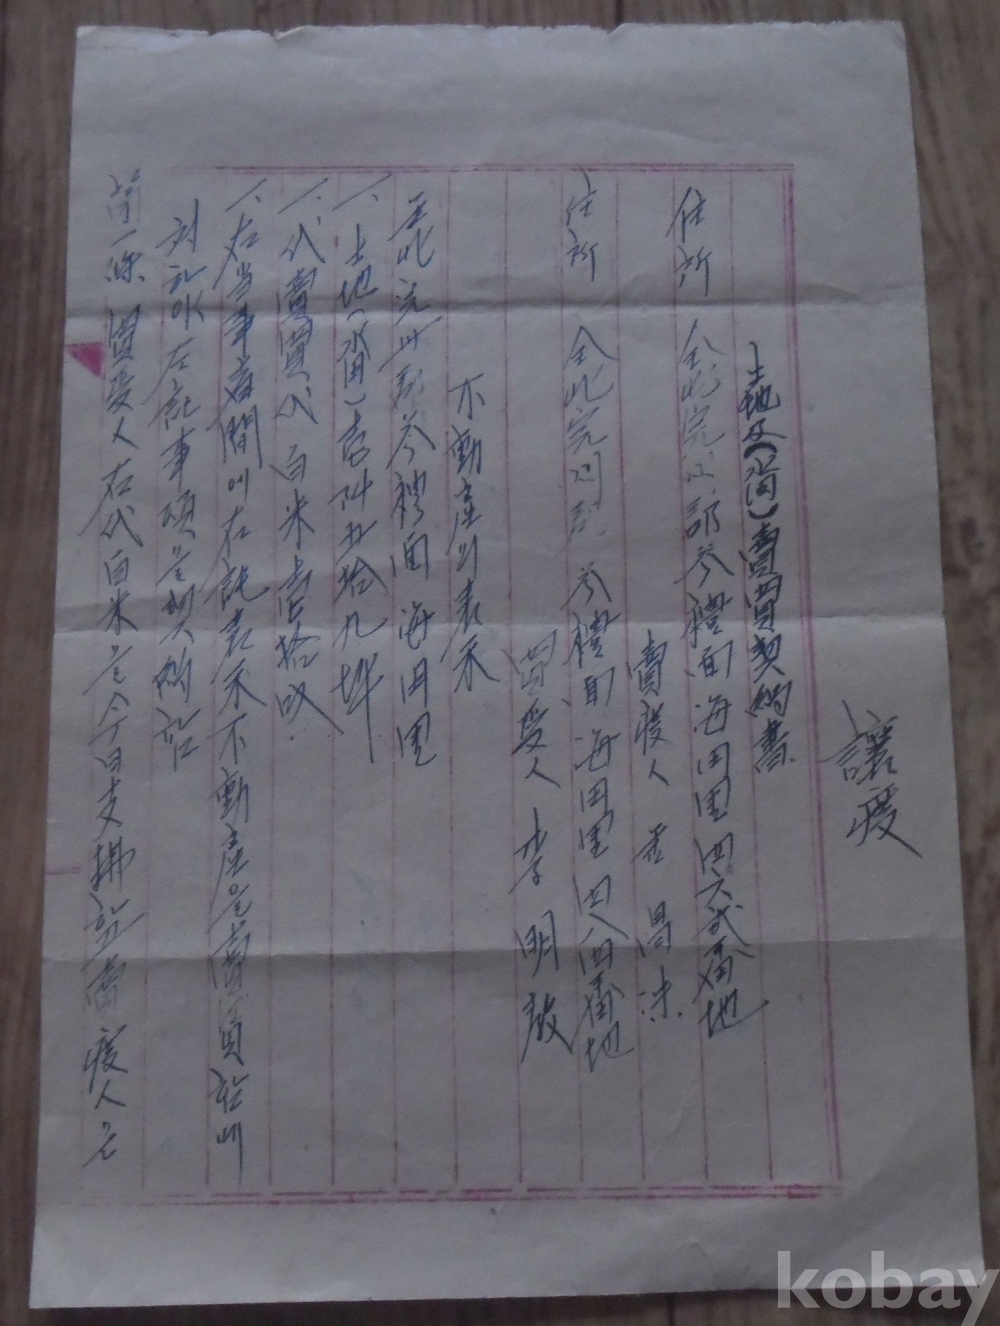 讓渡
土地及(畓)賣買契約書
住所 全北完州郡參禮面海田里四六貳番地
賣渡人 昌洙
住所 全北完州郡參禮面海田里四八四番地
買受人 李明
不動産의表示
全北完州郡參禮面海田里
一、土地(畓)壹阡五拾九坪
一、代賣買代 白米壹拾叺
一、右当事者間에右記表示不動産을賣買하며
左記事項을契約함
第一條 買受人右代白米을今日支拂하고賣渡人은
kobay